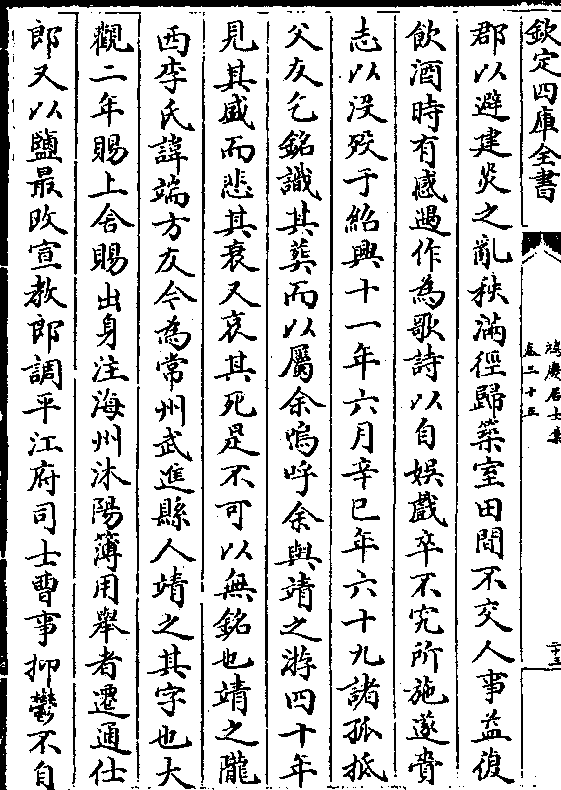 欽定四庫全書
鴻慶居士集
卷二十三
二十五
郡以避建炎之亂秩滿徑歸築室田間不交人事益復
飲酒時有感遇作為歌詩以自娛戲卒不究所施遂賫
志以没殁于紹興十一年六月辛巳年六十九諸孤抵
父友乞銘識其葬而以屬余嗚呼余與靖之游四十年
見其盛而悲其衰又哀其死是不可以無銘也靖之隴
西李氏諱端方友今為常州武進縣人靖之其字也大
觀二年賜上舍賜出身注海州沐陽簿用舉者遷通仕
郎又以鹽最改宣教郎調平江府司士曹事抑鬱不自